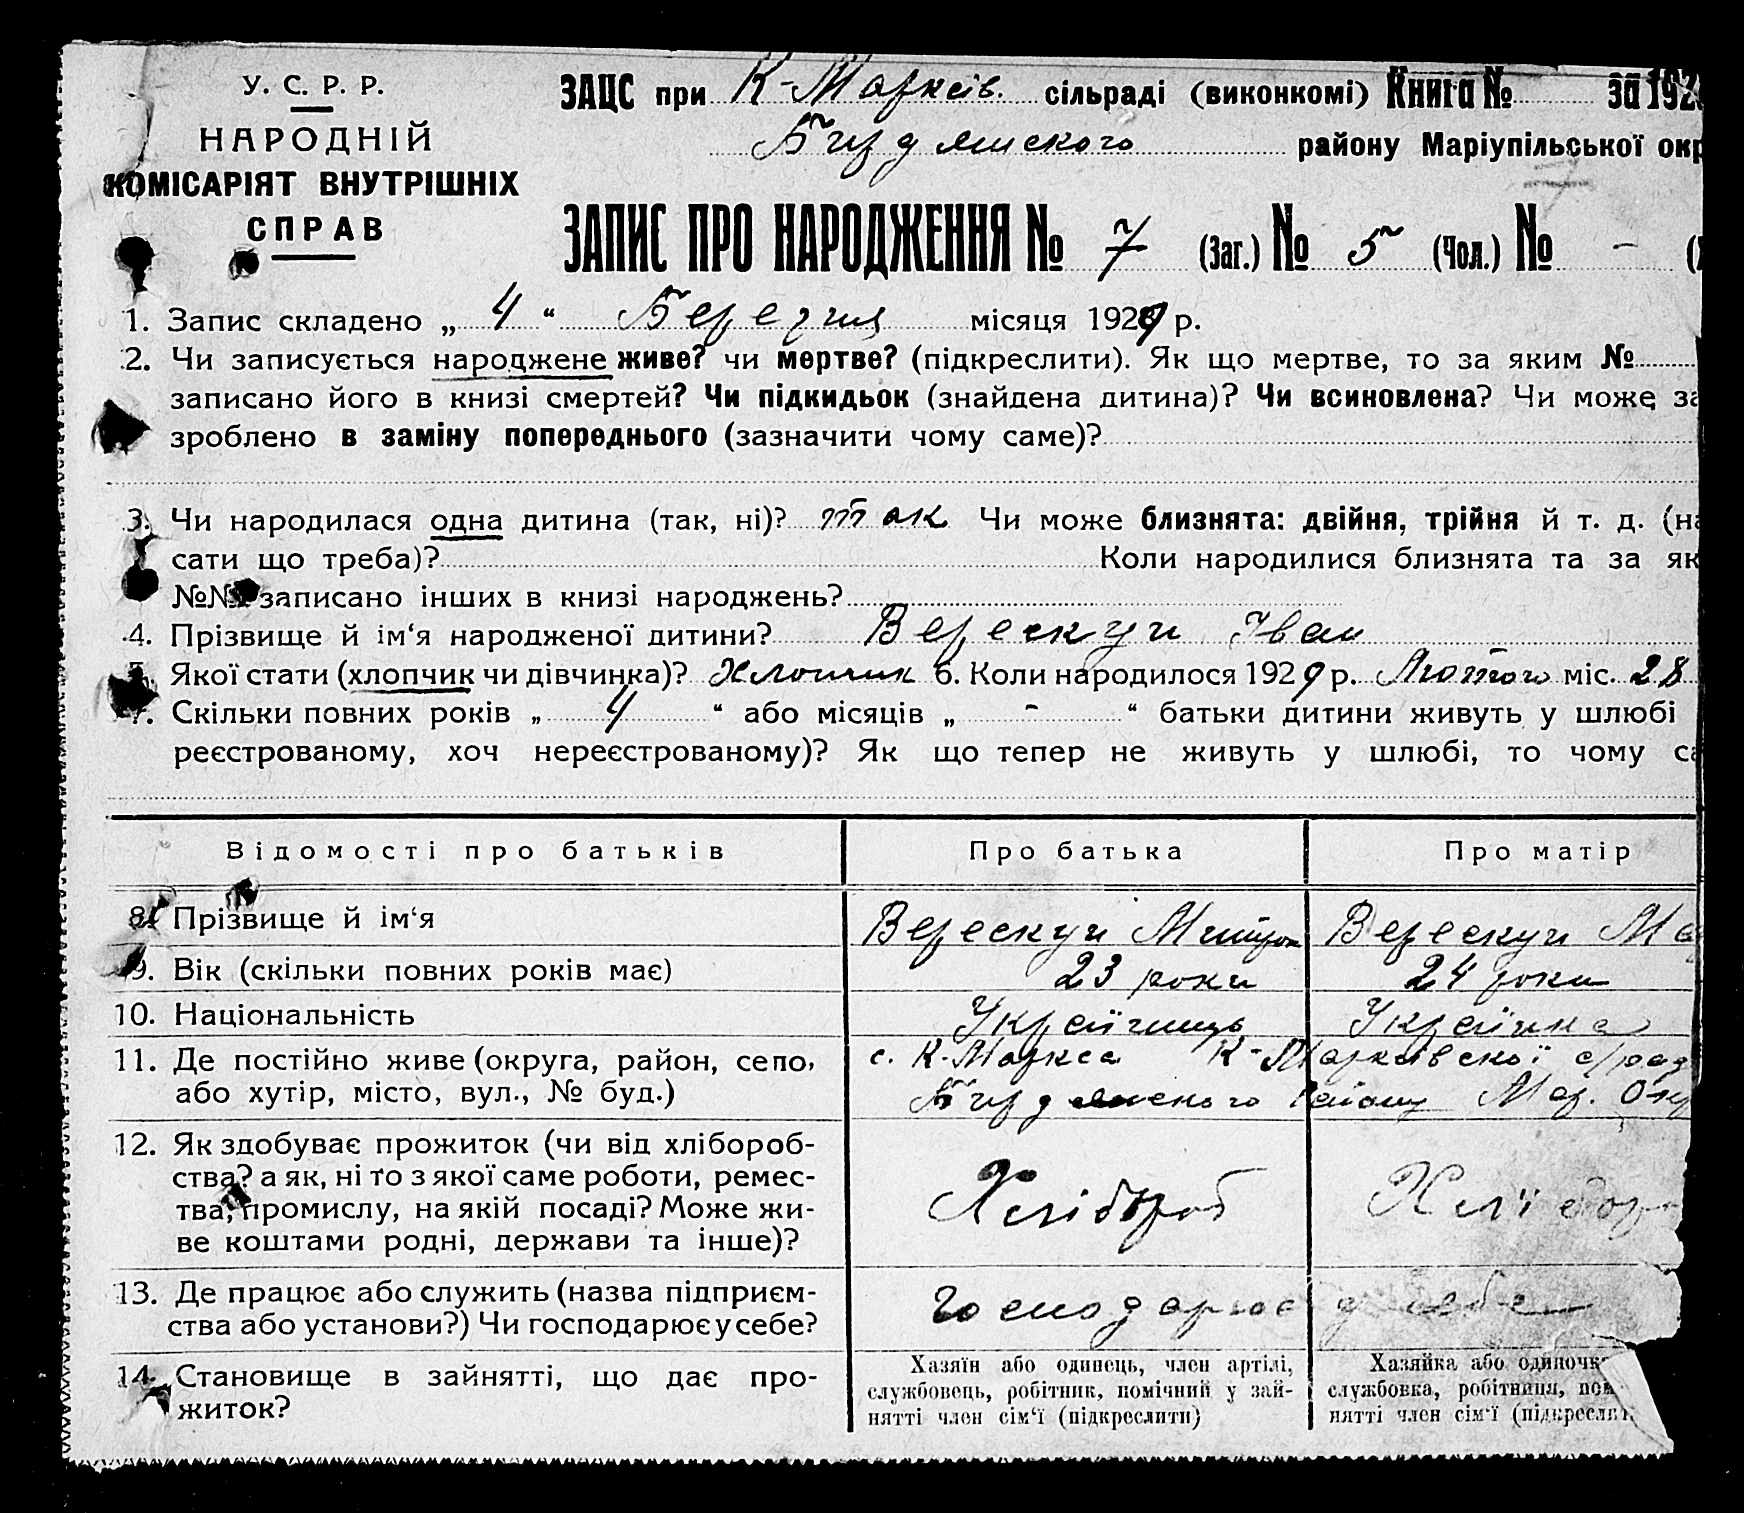 У. С. Р. Р.
НАРОДНІЙ
КОМІСАРІЯТ ВНУТРІШНІХ
СПРАВ
ЗАЦС при К-Марксів. сільраді (виконкомі) Книга № за 192
Бирдянского району Маріупільської окр
ЗАПИС ПРО НАРОДЖЕННЯ № 7 (Заг.) № 5 (Чол.) № - (
1. Запис складено „ 4 “ Березня місяця 1929 р.
2. Чи записується народжене живе? чи мертве? (підкреслити). Як що мертве, то за яким №
записано його в книзі смертей? Чи підкидьок (знайдена дитина)? Чи всиновлена? Чи може за
зроблено в заміну попереднього (зазначити чому саме)?
3. Чи народилася одна дитина (так, ні)? так Чи може близнята: двійня, трійня й т. д. (на
сати що треба)? Коли народилися близнята та за як
№№ записано інших в книзі народжень?
4. Прізвище й ім‘я народженої дитини? Верескун Іван
5. Якої стати (хлопчик чи дівчинка)? Хлопчик 6. Коли народилося 1929 р. Лютого міс. 28
7. Скільки повних років „ 4 “ або місяців „ - “ батьки дитини живуть у шлюбі
реєстрованому, хоч нереєстрованому)? Як що тепер не живуть у шлюбі, то чому са
Відомості про батьків Про батька Про матір
8. Прізвище й ім‘я Верескун Митрон Верескун Ма
9. Вік (скільки повних років має) 23 роки 24 роки
10. Національність Українць Українка
11. Де постійно живе (округа, район, село, с. К-Маркса К-Марксівскої с/рад
або хутір, місто, вул., № буд.) Бирдянского Району Мар. Окр
12. Як здобуває прожиток (чи від хлібороб-
ства? а як, ні то з якої саме роботи, ремес-
тва, промислу, на якій посаді? Може жи-
ве коштами родні, держави та інше)?
Хлібороб Хлібор
13. Де працює або служить (назва підприєм-
ства або установи?) Чи господарює у себе?
Господарює у себе
14. Становище в зайнятті, що дає про-
житок?
Хазяїн або одинець, член артілі,
службовець, робітник, помічний у зай-
нятті член сім‘ї (підкреслити)
Хазяйка або одиночк
службовка, робітниця, пом
нятті член сім‘ї (підкресли